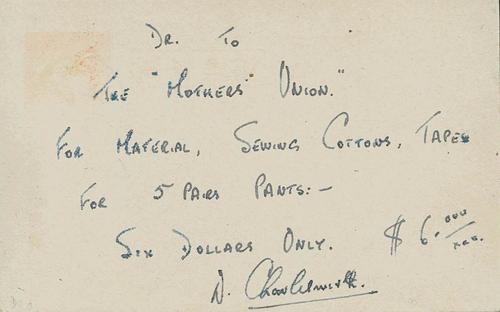 Dr. To
The "Mothers' Union."
For Material, Sewing Cottons, Tapes
For 5 Pairs Pants:-
Six Dollars Only. $ 6.
N.